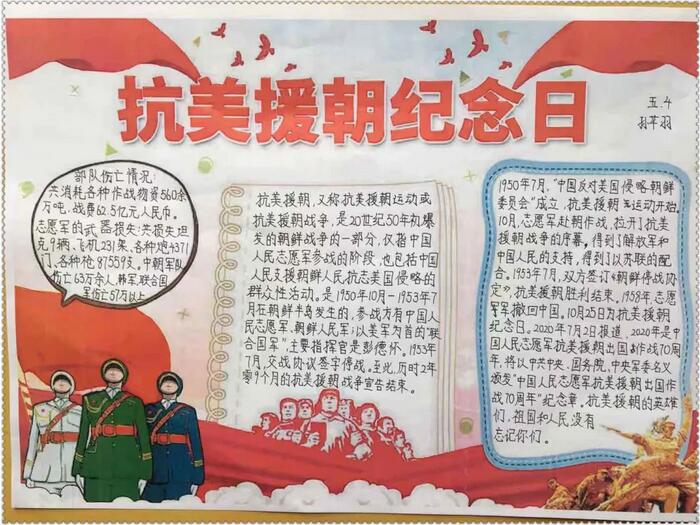 抗美援朝纪念日
五.4
部队伤亡情况:
共消耗各种作战物资560余
万吨,战费62.5亿元人民币。
志愿军的武器损失:共损失坦
克9辆、飞机231架、各种炮4371
门、各种枪87559支。中朝军队
伤亡63万余人,韩军、联合国
军伤亡57万以上
抗美援朝,又称抗美援朝运动或
抗美援朝战争,是20世纪50年初爆
发的朝鲜战争的一部分,仅指中国
人民志愿军参战的阶段,也包括中国
人民支援朝鲜人民抗击美国侵略的
群众性活动。是1950年10月-1953年7
月在朝鲜半岛发生的,参战方有中国人
民志愿军、朝鲜人民军;以美军为首的“联
合国军”,主要指挥官是彭德怀。1953年
7月,交战协议签字停战。至此,历时2年
零9个月的抗美援朝战争宣告结束。
1950年7月,“中国反对美国侵略朝鲜
委员会”成立,抗美援朝运动开始。
10月,志愿军赴朝作战,拉开了抗美
援朝战争的序幕。得到了解放军和
中国人民的支持,得到了以苏联的配
合。1953年7月,双方签订《朝鲜停战协
定》,抗美援朝胜利结束。1958年,志愿
军撤回中国。10月25日为抗美援朝
纪念日。2020年7月2日报道,2020年是中
国人民志愿军抗美援朝出国作战70周
年,将以中共中央、国务院、中央军委名义
颁发“中国人民志愿军抗美援朝出国作
战70周年”纪念章。抗美援朝的英雄
们,祖国和人民没有
忘记你们。